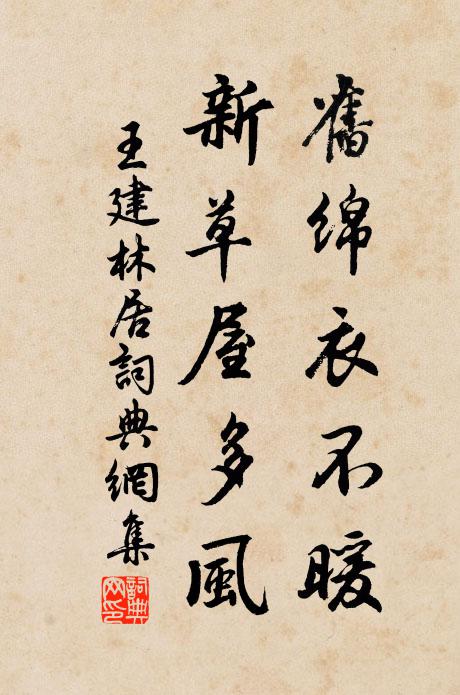 舊绵衣不暖
新草屋多風
王建林居詞典網集
詞典
网印